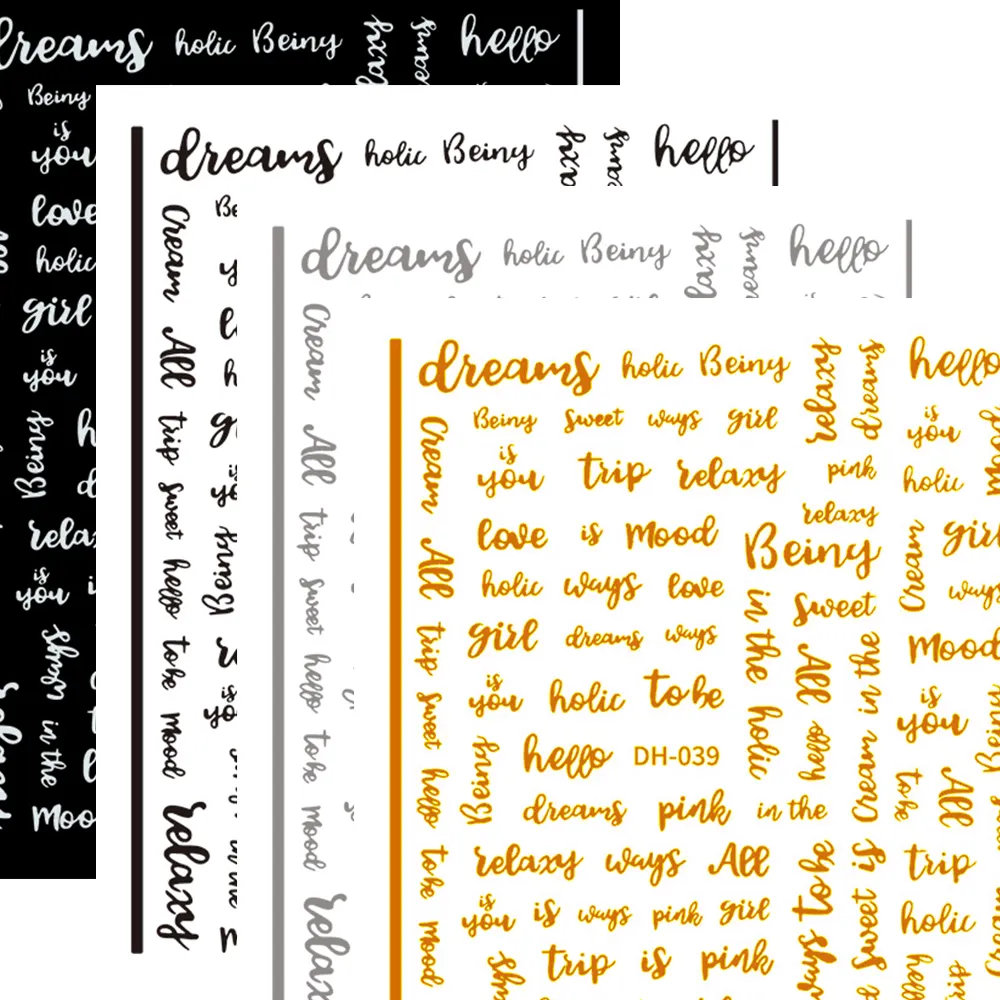 dreams holic Beiny relaxy hello
Beiny
is
you
love
holic
girl
is
you
Beiny
is
you
ways in the
dreams holic Beiny hello
Cream All trip sweet hello to be mood relaxy
dreams holic Beiny hello
Cream All trip sweet hello to be mood
dreams holic Beiny relaxy dreams hello
Cream All trip sweet hello to be mood
Beiny sweet ways girl
is
you
is
you trip relaxy pink holic
relaxy
love is Mood Beiny Cream
holic ways love
in the holic sweet
girl dreams ways All Cream in the Mood
is
you holic to be
is
you
hello DH-039 hello
Beiny to be All
dreams pink in the
relaxy ways All trip
ways to be sweet is
is
you is ways pink girl holic
trip is pink hello trip